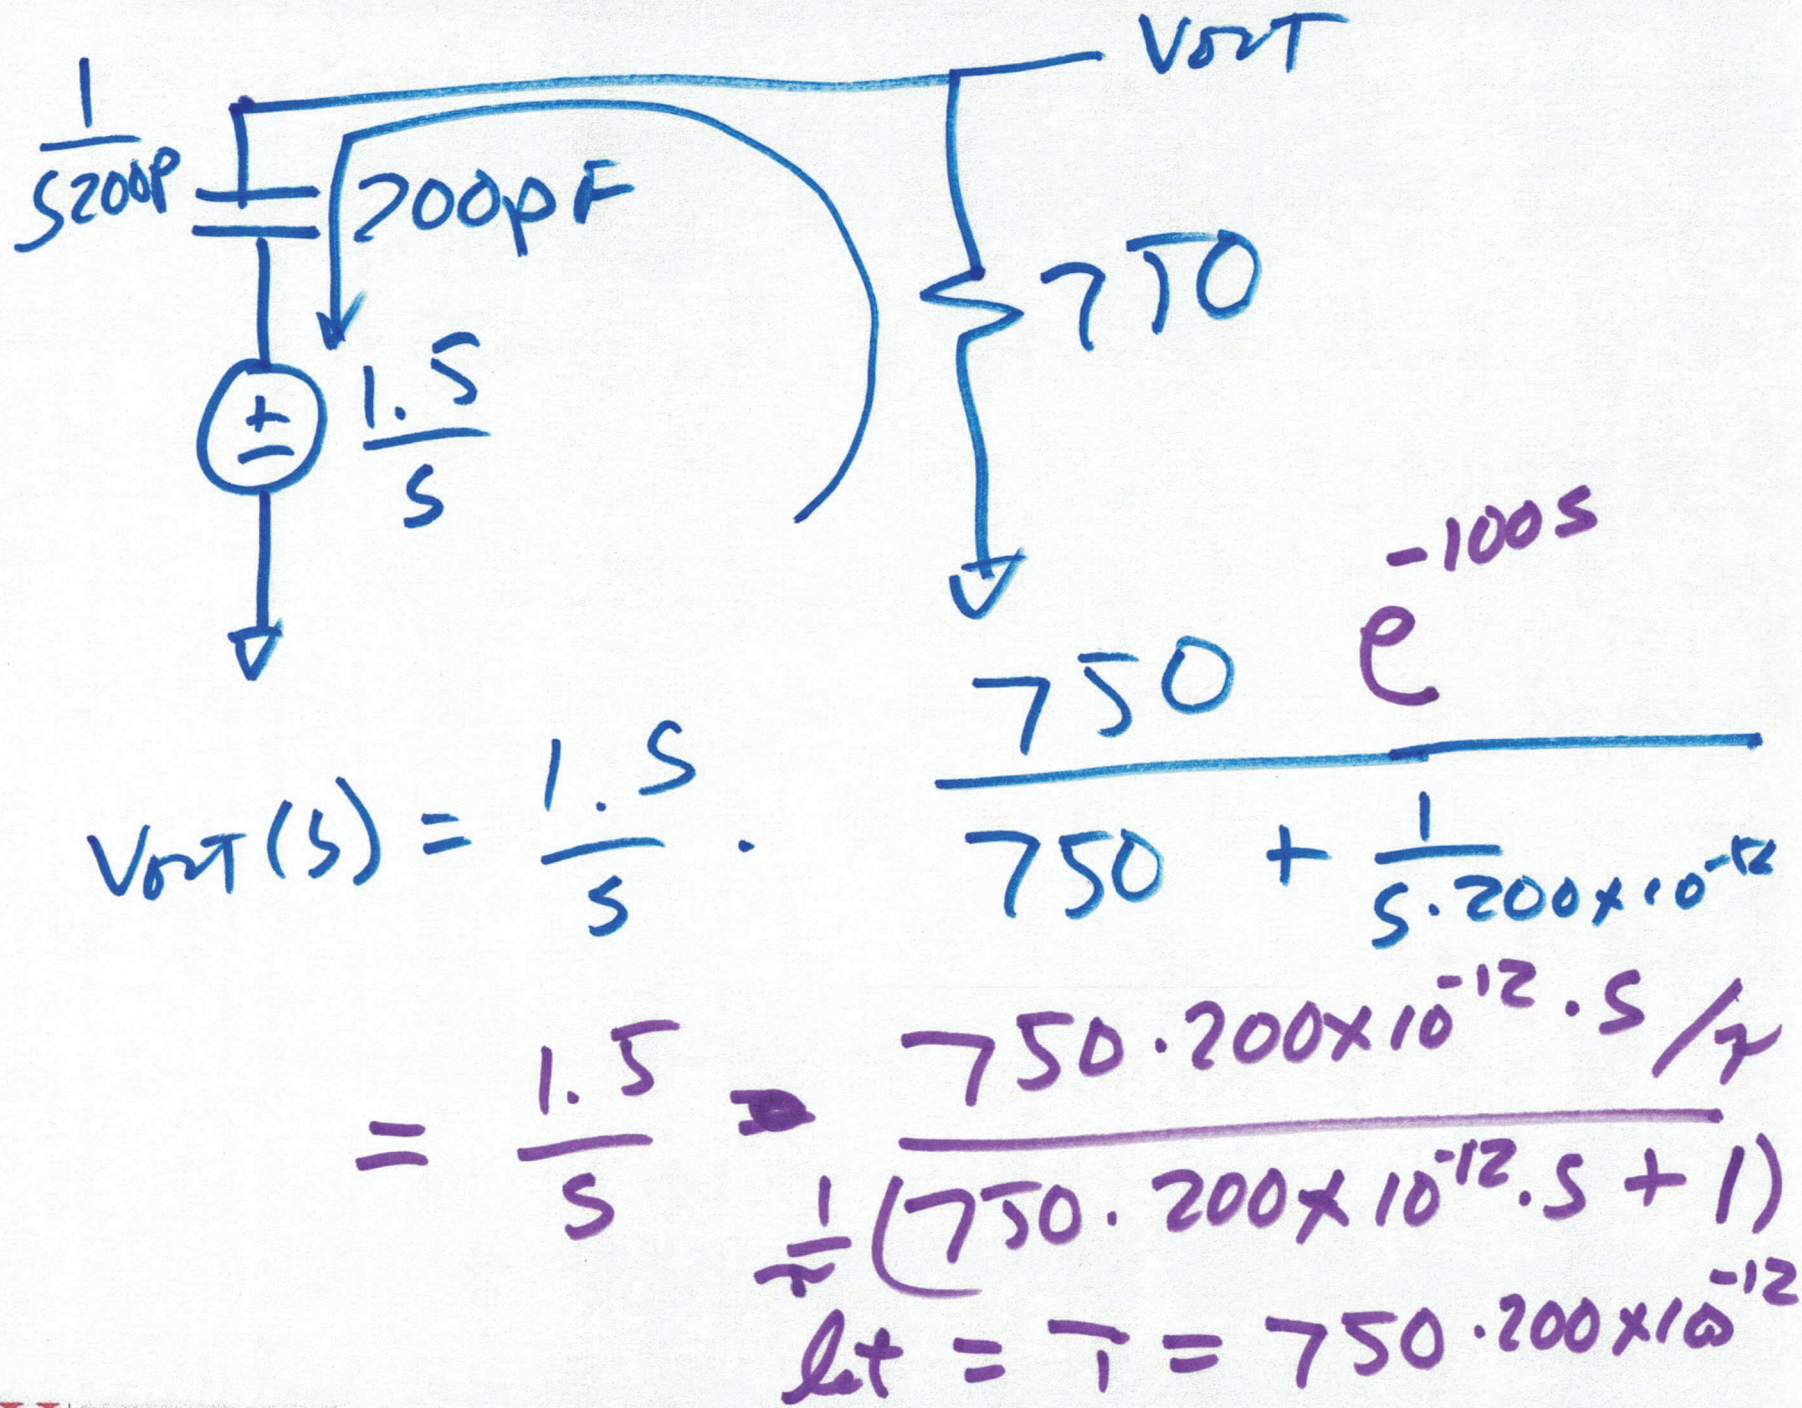 VOUT
1
S200P
200pF
750
1.5
S
-100S
750 e
VOUT(S) = 1.5 .
S
750 + 1
S.200x10^-12
= 1.5
S
750.200x10^-12 . S /τ
1
τ
(750. 200x10^-12. S + 1)
let = τ = 750 .200x10^-12